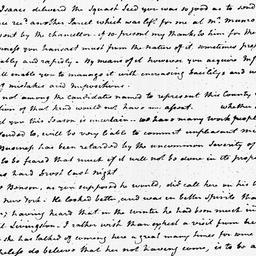 Isaac delivered the Squash Seed you was so good as to send
rec'd another Parcel which was left for me at Mr.
sent by the chancellor. I so present my thanks to him for the
business you transact must from the nature of it sometimes prep
ably and rapidly. By means of it however you acquire Inf
ll enable you to manage it with encreasing facility and
of mistakes and Imposition.
not among the Candidates named to represent this County
tion of that kind would not have been afloat. Whether
d you this Season is uncertain. We have many work people
tended to, will be very liable to commit unpleasant
has been retarded by the uncommon Severity of
to be feared that much of it will not be done in its prope
as hard frost last night
Benson, as you supposed he would, did call here on his
New York. He looked better, and was in better Spirits tha
; having heard that in the winter he had been much in
Livingston. I rather wish than expect a visit from he
she has talked of coming here a great many times for one
theless do believe that her not having come, is to be a